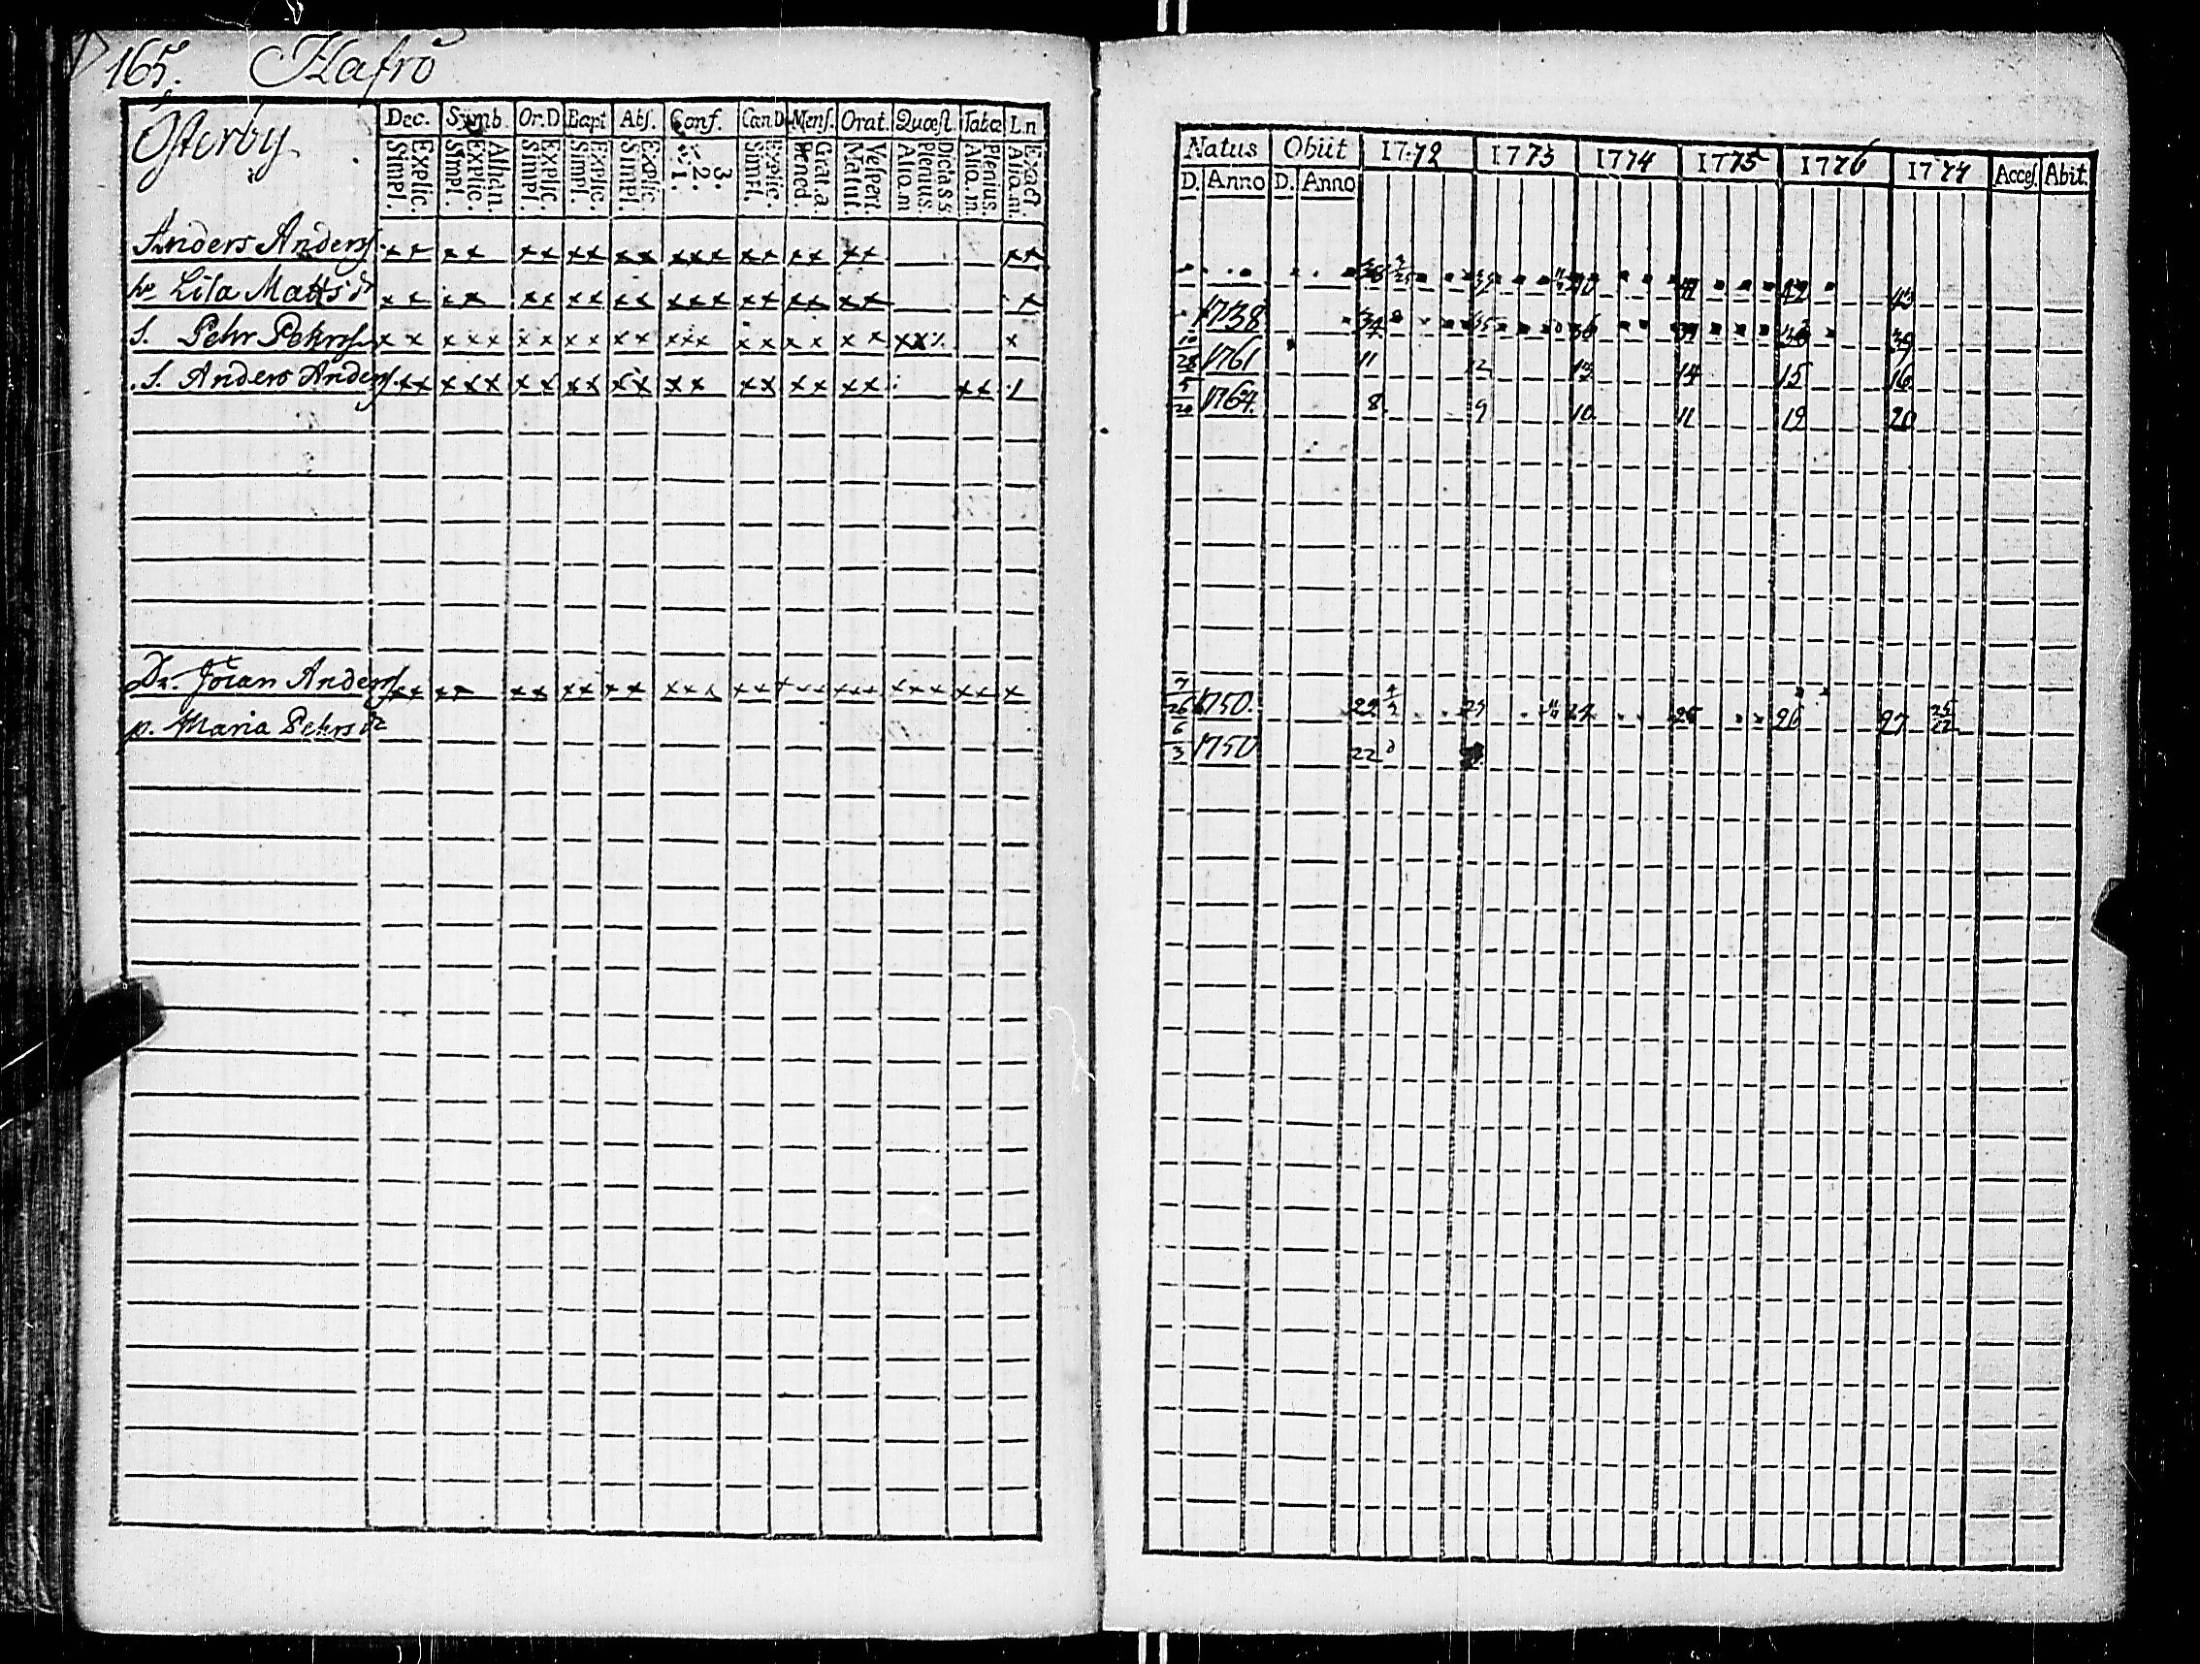 165. Hafrö
Österby
Dec. Symb. Or. D Bapt Abs. Conf. Can D Mens. Orat. Quæst Tabæ Ln
Explic. Simpl. Athan. Explic. Simpl. Explic. Simpl. Explic. Simpl. Explic. Simpl. 3. 2. 1. Explic. Simpl. Grat. a. Bened. Vespert. Matut. Dicta S. S. Plenius. Alio. m Plenius. Alio. m. Exact. Alio. m.
Anders Anders. x x x x x x x x x x x x x x x x x x x x x
hu Lisa Matts dr x x x x x x x x x x x x x x x x x x x x
S. Pehr Pehrs. x x x x x x x x x x x x x x x x x x x x x x x
S. Anders Anders. x x x x x x x x x x x x x x x x x x x x x x
Dr. Jöran Anders. x x x x x x x x x x x x x x x x x x x x x x x x x x
p. Maria Pehrs dr
Natus Obiit 1772 1773 1774 1775 1776 1777 Acces. Abit.
D. Anno D. Anno
39 40 41 42 43
1738 34 35 36 37 38 39
10/28 1761 11 12 13 14 15 16
5/20 1764. 8 9 10 11 19 20
7/26 1750. 22 23 24 25 26 27 25/12
6/3 1750 22